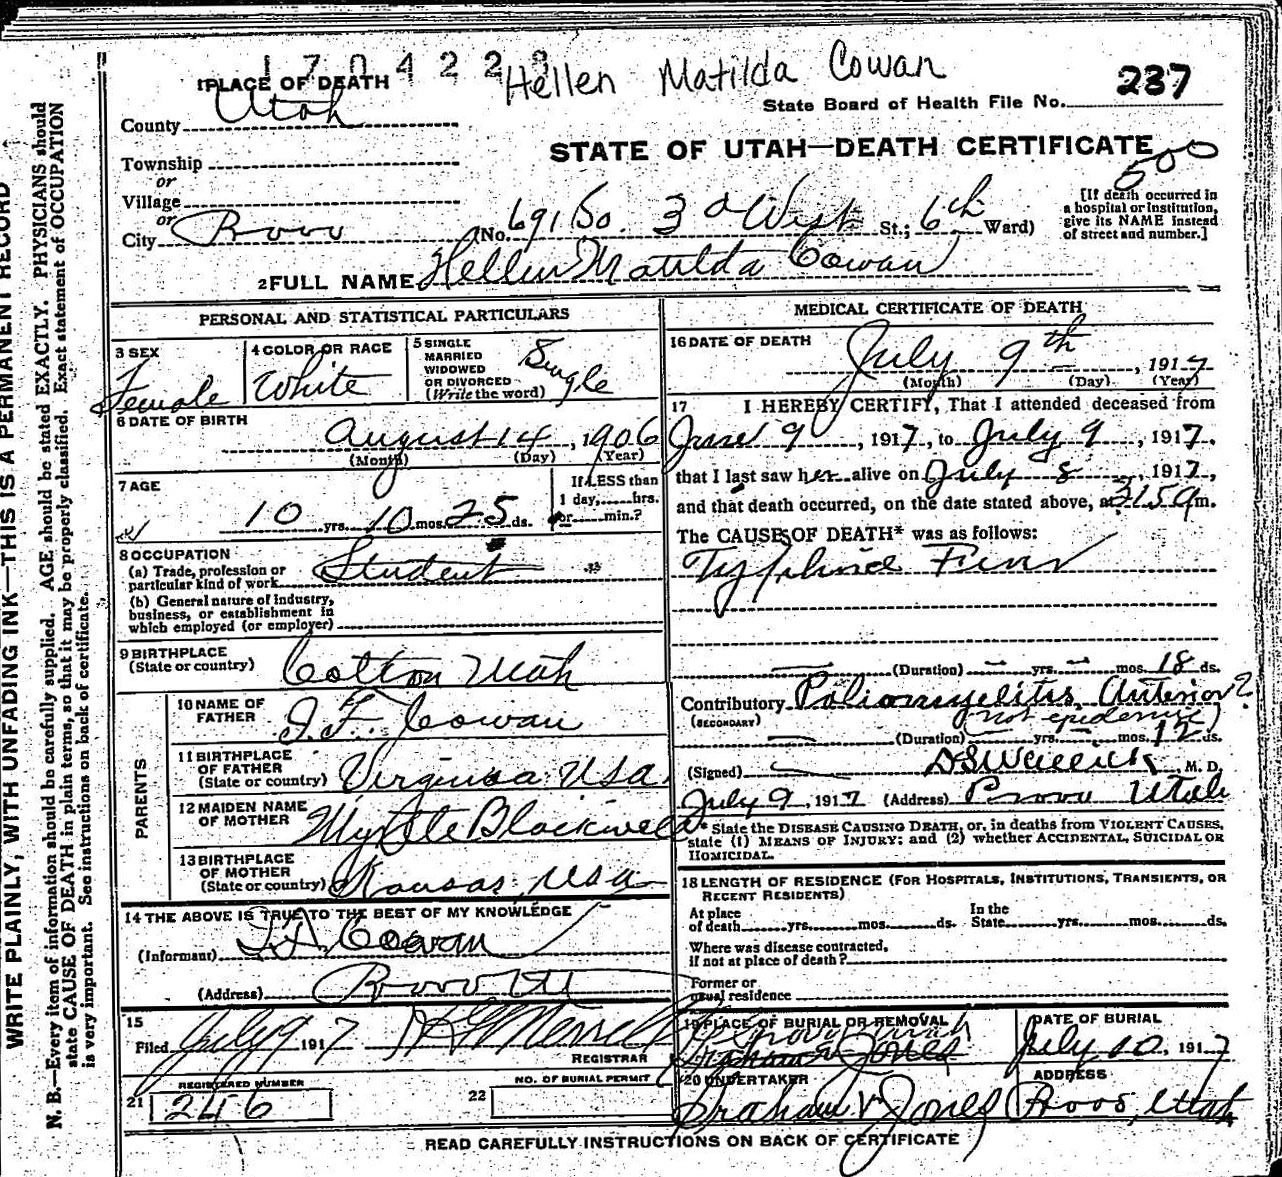 1704228
Hellen Matilda Cowan
237
1 PLACE OF DEATH
State Board of Health File No.
County Utah
STATE OF UTAH—DEATH CERTIFICATE
500
Township
or
Village
or
City Provo (No. 691 So. 3d West St.; 6th Ward)
[If death occurred in
a hospital or institution,
give its NAME instead
of street and number.]
2 FULL NAME Hellen Matilda Cowan
PERSONAL AND STATISTICAL PARTICULARS
3 SEX
Female
4 COLOR OR RACE
White
5 SINGLE
MARRIED
WIDOWED
OR DIVORCED
(Write the word)
Single
6 DATE OF BIRTH
August 14, 1906
(Month) (Day) (Year)
7 AGE
10 yrs. 10 mos. 25 ds.
If LESS than
1 day, hrs.
or min.?
8 OCCUPATION
(a) Trade, profession or
particular kind of work Student
(b) General nature of Industry,
business, or establishment in
which employed (or employer)
9 BIRTHPLACE
(State or country) Colton Utah
PARENTS
10 NAME OF
FATHER Cowan
11 BIRTHPLACE
OF FATHER
(State or country) Virginia USA
12 MAIDEN NAME
OF MOTHER Myrtle Blackwell
13 BIRTHPLACE
OF MOTHER
(State or country) Kansas USA
14 THE ABOVE IS TRUE TO THE BEST OF MY KNOWLEDGE
(Informant) Cowan
(Address) Provo Ut
15
Filed July 9 1917
REGISTRAR
REGISTERED NUMBER
21 246
NO. OF BURIAL PERMIT
22
MEDICAL CERTIFICATE OF DEATH
16 DATE OF DEATH
July 9th, 1917
(Month) (Day) (Year)
17 I HEREBY CERTIFY, That I attended deceased from
June 9, 1917, to July 9, 1917,
that I last saw her alive on July 8, 1917,
and that death occurred, on the date stated above, at 3:15 m.
The CAUSE OF DEATH* was as follows:
Typhoid Fever
(Duration) yrs. mos. 18 ds.
Contributory Poliomyelitis Anterior?
(SECONDARY) (not epidemic)
(Duration) yrs. mos. 12 ds.
(Signed) M. D.
July 9, 1917 (Address) Provo Utah
* State the DISEASE CAUSING DEATH, or, in deaths from VIOLENT CAUSES,
state (1) MEANS OF INJURY; and (2) whether ACCIDENTAL, SUICIDAL OR
HOMICIDAL.
18 LENGTH OF RESIDENCE (FOR HOSPITALS, INSTITUTIONS, TRANSIENTS, OR
RECENT RESIDENTS)
At place
of death yrs. mos. ds.
In the
State yrs. mos. ds.
Where was disease contracted,
if not at place of death?
Former or
usual residence
19 PLACE OF BURIAL OR REMOVAL
DATE OF BURIAL
July 10, 1917
20 UNDERTAKER
Graham V Jones
ADDRESS
Provo, Utah
READ CAREFULLY INSTRUCTIONS ON BACK OF CERTIFICATE
WRITE PLAINLY, WITH UNFADING INK—THIS IS A PERMANENT RECORD
N. B.—Every item of information should be carefully supplied. AGE should be stated EXACTLY. PHYSICIANS should
state CAUSE OF DEATH in plain terms, so that it may be properly classified. Exact statement of OCCUPATION
is very important. See instructions on back of certificate.